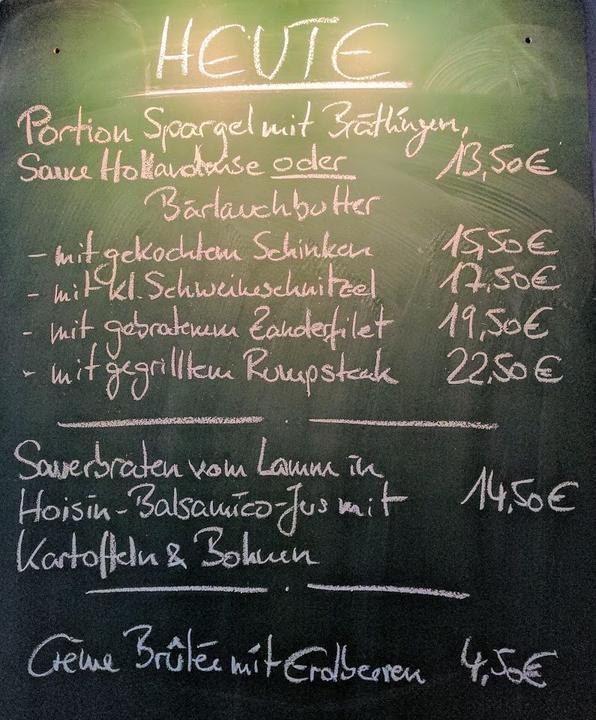 HEUTE
Portion Spargel mit Brätlingen,
Sauce Hollandaise oder 13,50€
Bärlauchbutter
- mit gekochtem Schinken 15,50€
- mit kl. Schweineschnitzel 17,50€
- mit gebratenem Zanderfilet 19,50€
- mit gegrilltem Rumpsteak 22,50€
Sauerbraten vom Lamm in
Hoisin-Balsamico-Jus mit 14,50€
Kartoffeln & Bohnen
Crème Brûlée mit Erdbeeren 4,50€